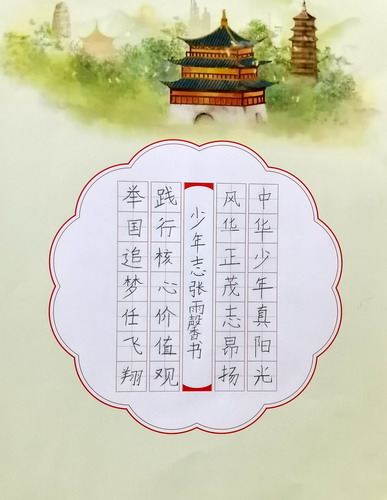 中华少年真阳光
风华正茂志昂扬
少年志张雨馨书
践行核心价值观
举国追梦任飞翔